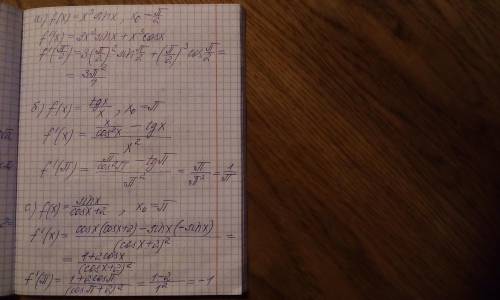 а) f(x) = x³ sinx, x₀ = π/2
f'(x) = 3x² sinx + x³ cosx
f'(π/2) = 3(π/2)² sin π/2 + (π/2)³ cos π/2 =
= 3π²/4
б) f(x) = tgx/x, x₀ = π
f'(x) = (x/cos²x - tgx)/x²
f'(π) = (π/cos²π - tgπ)/π² = π/π² = 1/π
с) f(x) = sinx/(cosx+2), x₀ = π
f'(x) = (cosx(cosx+2) - sinx(-sinx))/(cosx+2)² =
= (1+2cosx)/(cosx+2)²
f'(π) = (1+2cosπ)/(cosπ+2)² = (1-2)/1² = -1